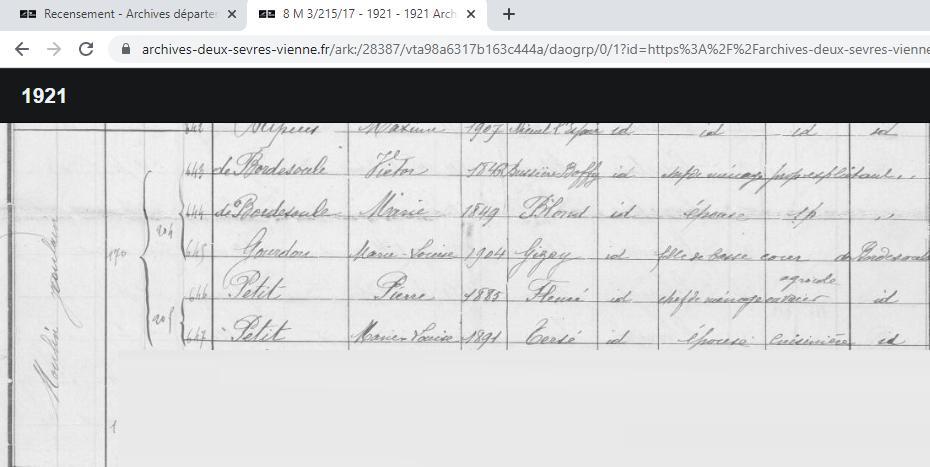 Recensement - Archives départem
8 M 3/215/17 - 1921 - 1921 Arch
archives-deux-sevres-vienne.fr/ark:/28387/vta98a6317b163c444a/daogrp/0/1?id=https%3A%2F%2Farchives-deux-sevres-vienne
1921
642 Maxime 1907 id id id id
643 de Bordesoule Victor Bussière Boffy id chef de ménage prop exploitant
644 de Bordesoule Marie 1849 Blond id épouse sp "
645 Gourdon Marie-Louise 1904 Gizay id fille de basse cour de Bordesoule
646 Petit Pierre 1885 Fleuré id chef de ménage ouvrier agricole id
647 Petit Marie-Louise 1891 Tercé id épouse cuisinière id
170
204
205
Moulin
1